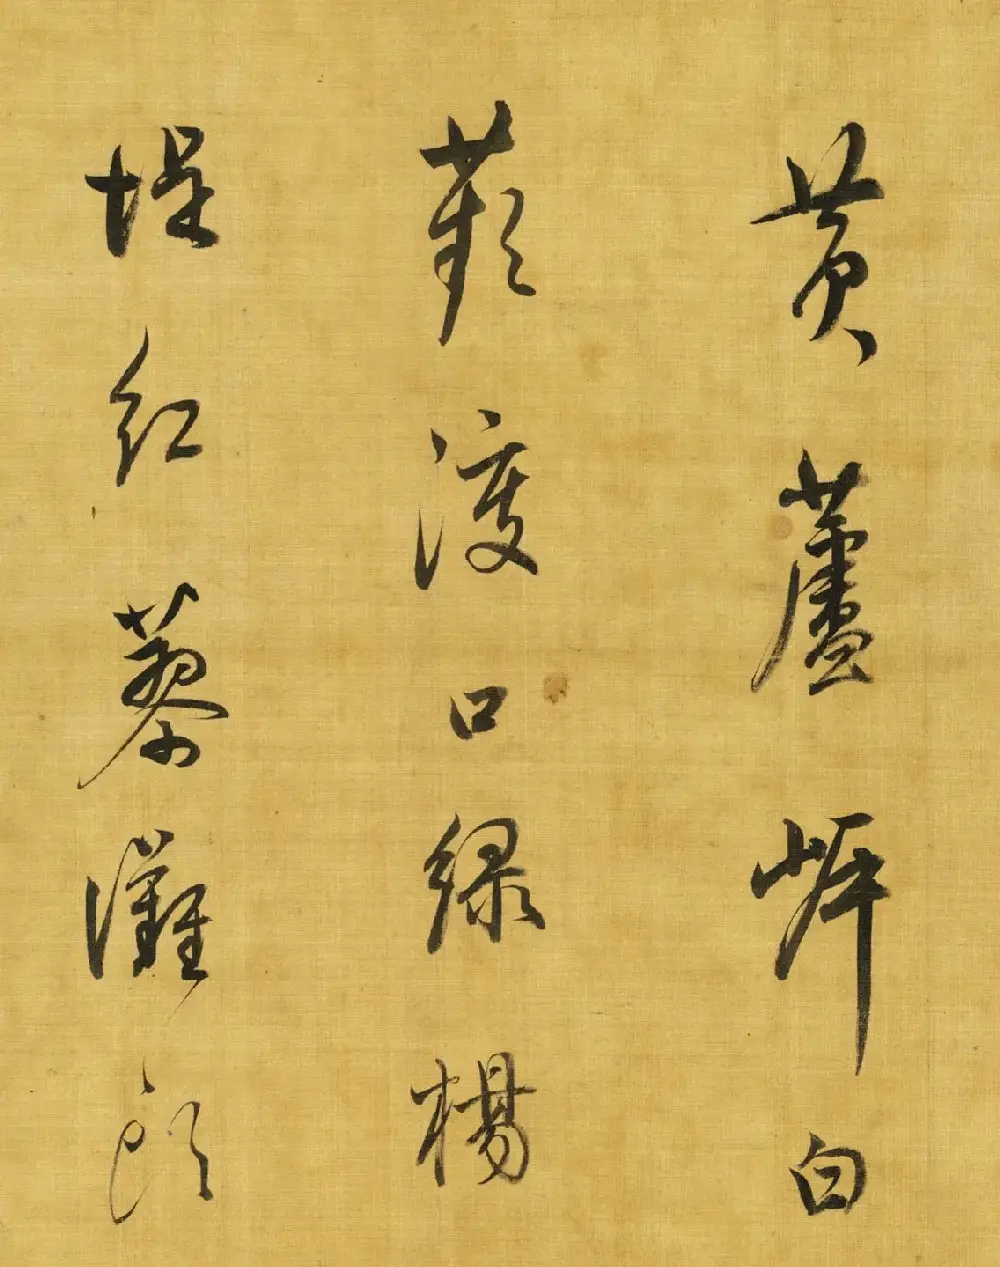 黄蘆岸白
蘋渡口綠楊
堤紅蓼灘頭